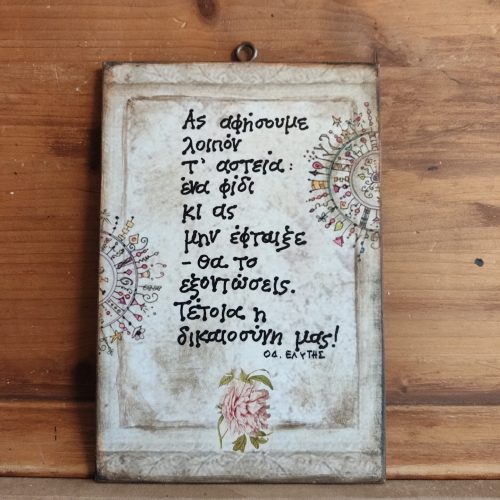 Ας αφήσουμε
λοιπόν
τ' αστεία:
ένα φίδι
κι ας
μην έφταιξε
- θα το
εξοντώσεις.
Τέτοια η
δικαιοσύνη μας!
ΟΔ. ΕΛΥΤΗΣ